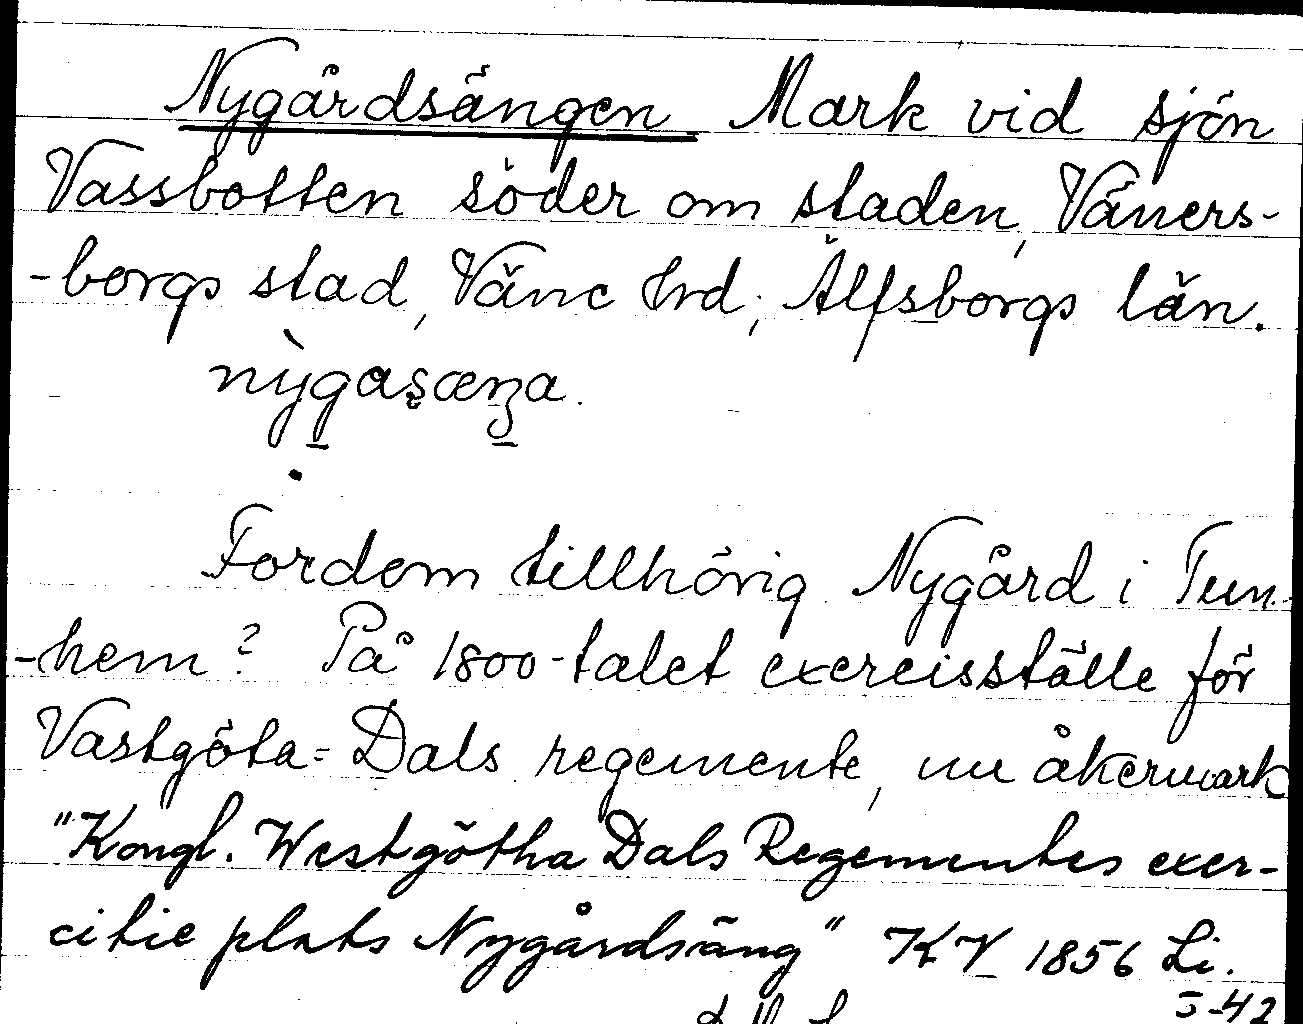 Nygårdsängen Mark vid sjön
Vassbotten söder om staden, Väners-
-borgs stad, Väne hrd; Älfsborgs län.
Fordom tillhörig Nygård i Tun-
-hem? På 1800-talet exercisställe för
Västgöta-Dals regemente, nu åkermark
"Kongl. Westgötha Dals Regementes exer-
citie plats Nygårdsäng" KV 1856 Li.
5-42